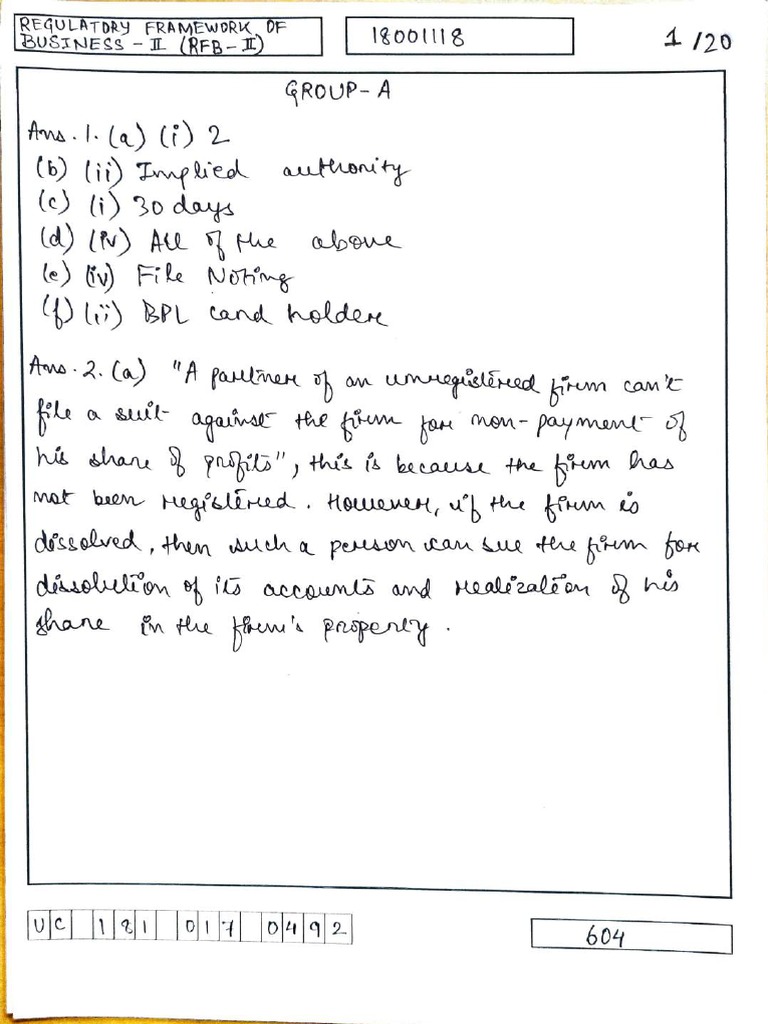 REGULATORY FRAMEWORK OF
BUSINESS - II (RFB-II)
18001118
1/20
GROUP-A
Ans. 1. (a) (i) 2
(b) (ii) Implied authority
(c) (i) 30 days
(d) (iv) All of the above
(e) (iv) File Noting
(f) (ii) BPL card holder
Ans. 2. (a) "A partner of an unregistered firm can't
file a suit against the firm for non-payment of
his share of profits", this is because the firm has
not been registered. However, if the firm is
dissolved, then such a person can sue the firm for
dissolution of its accounts and realization of his
share in the firm's property.
UC 181 017 0492
604